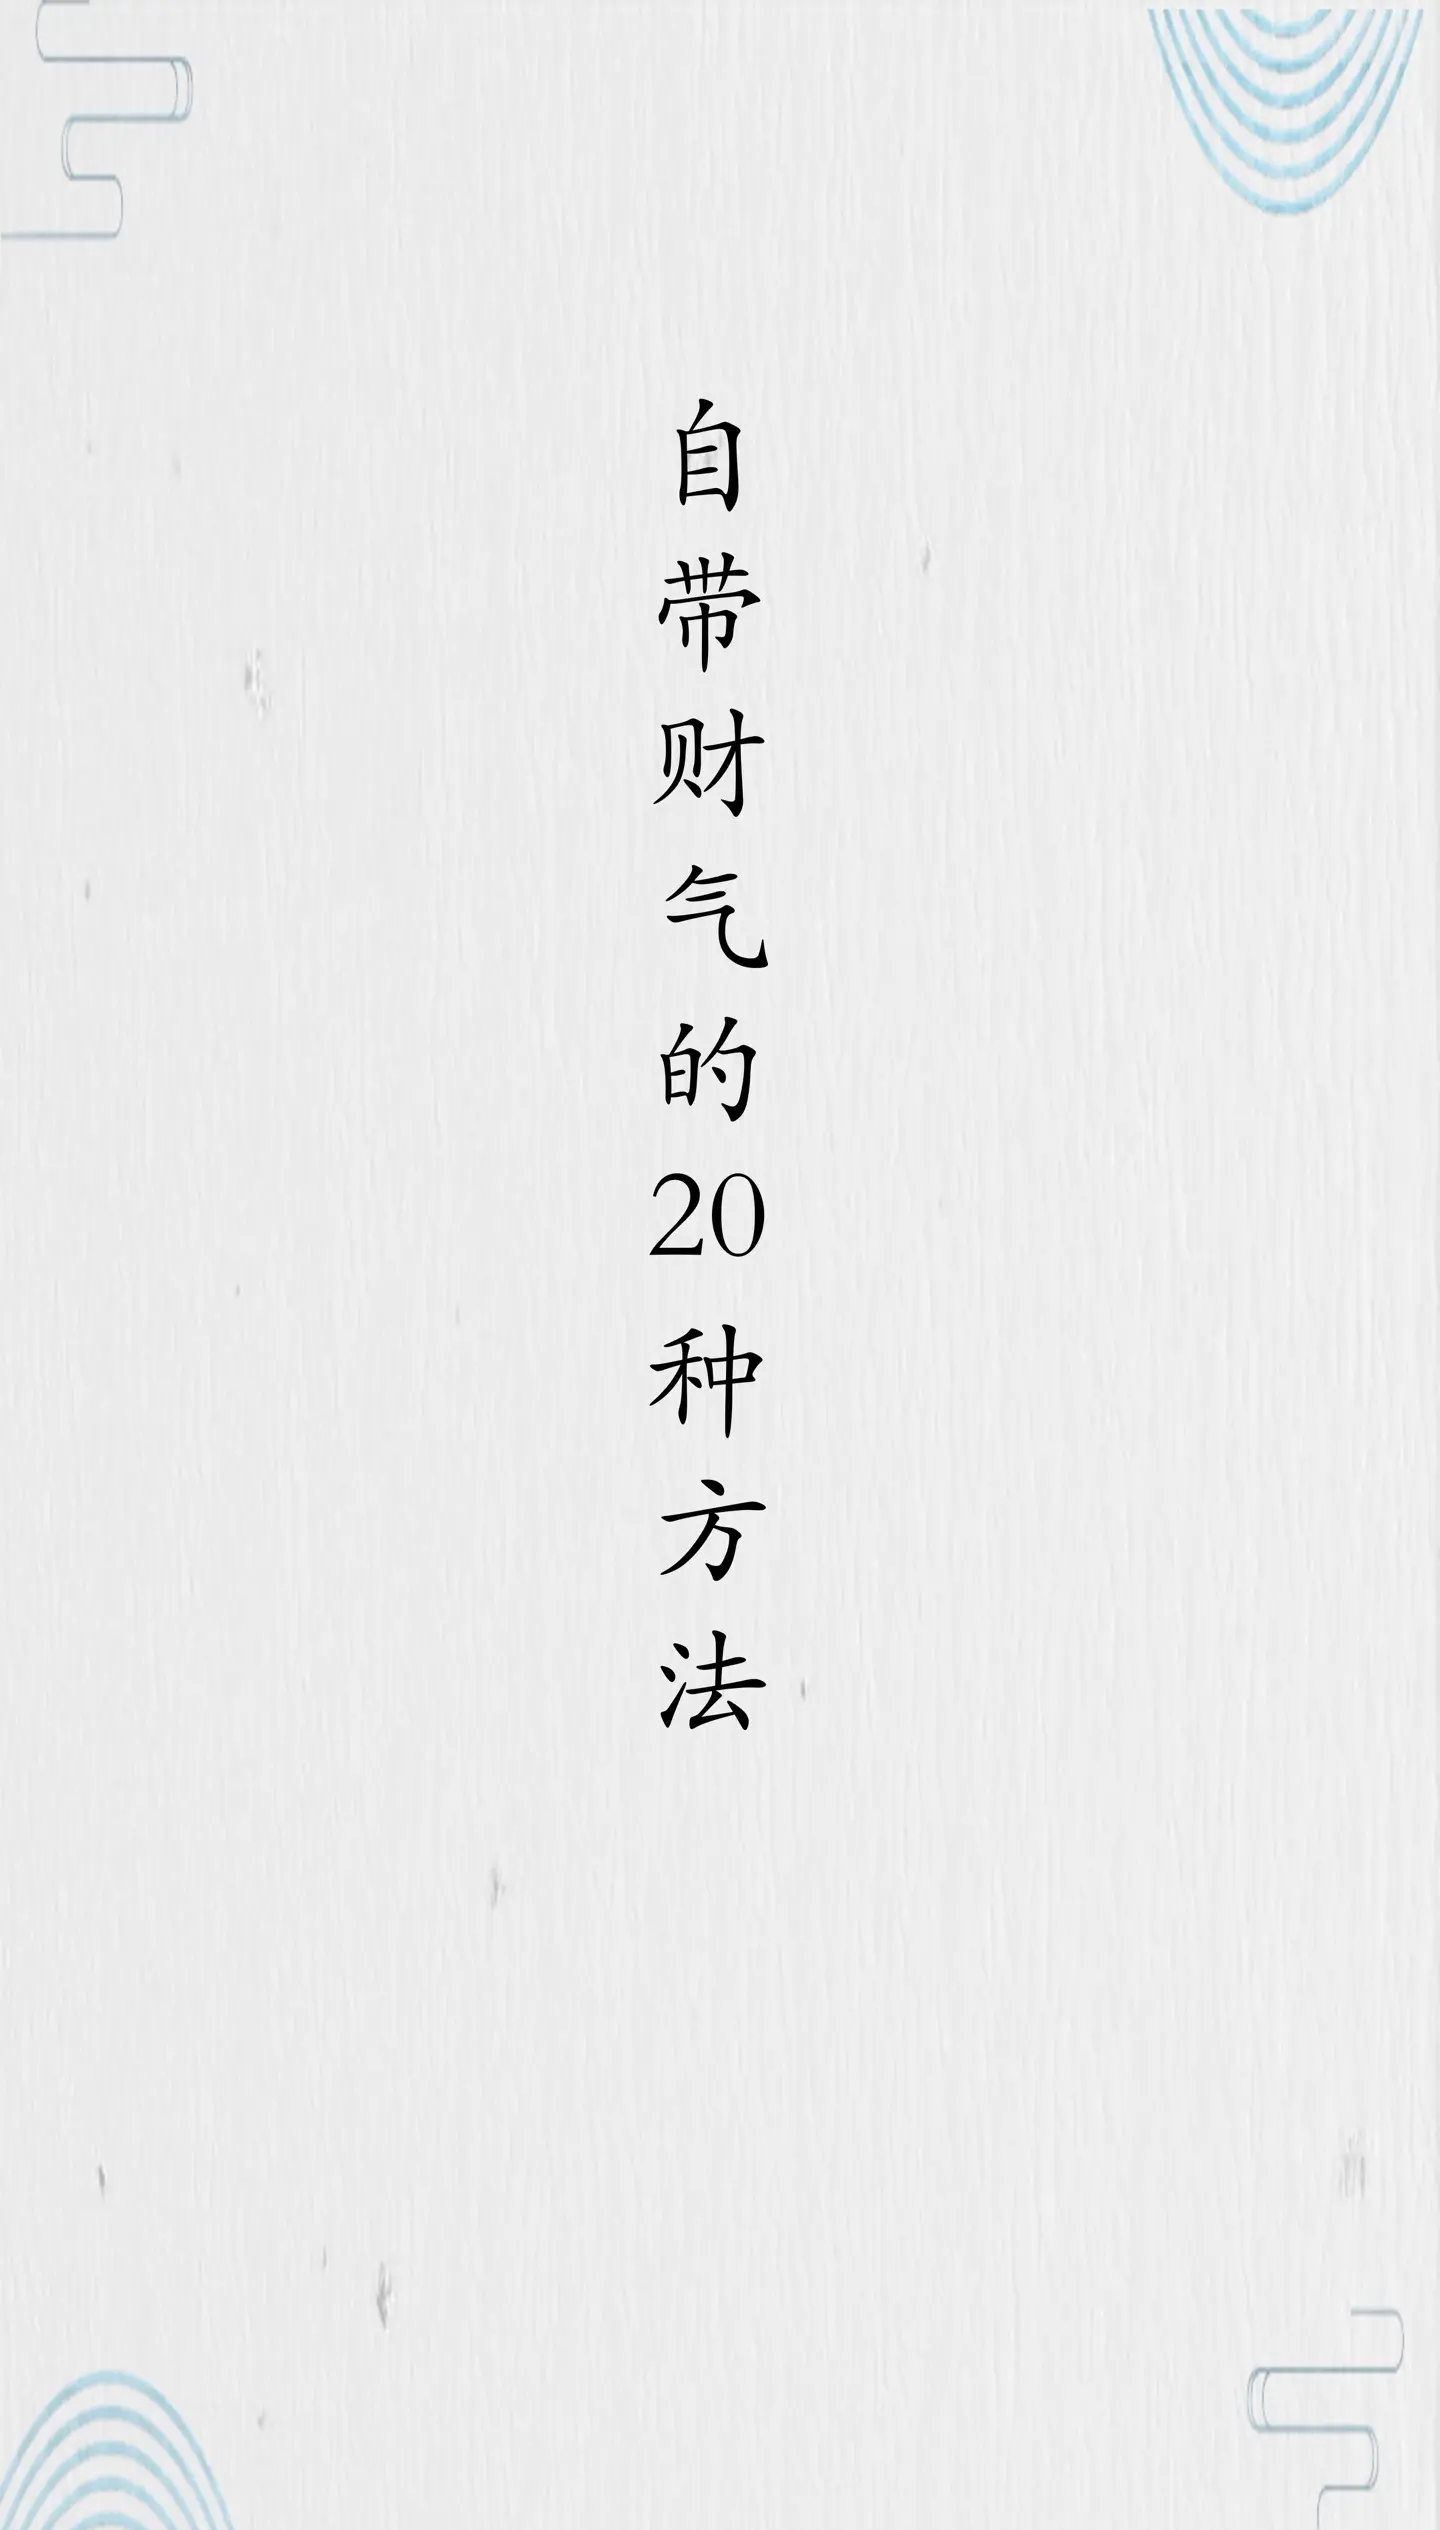 自带财气的20种方法